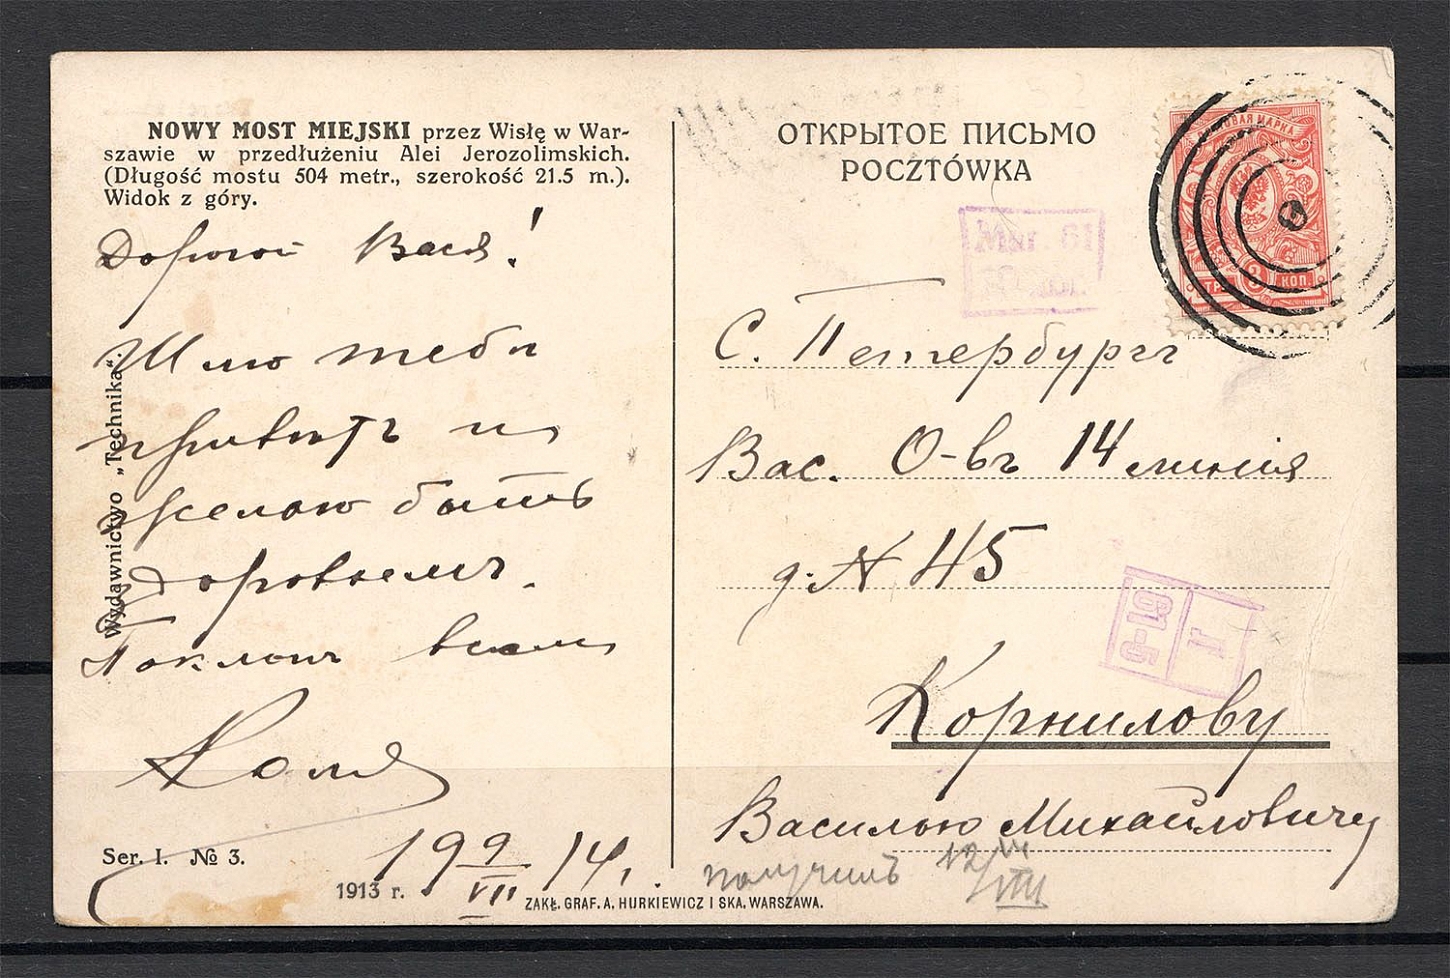 NOWY MOST MIEJSKI przez Wisłę w War-
szawie w przedłużeniu Alei Jerozolimskich.
(Długość mostu 504 metr., szerokość 21.5 m.).
Widok z góry.
Дорогой Вася!
Шлю тебѣ
привѣтъ и
желаю быть
здоровымъ.
Поклонъ всѣмъ
Коля
19 9/VIII 14.
Wydawnictwo „Technika".
Ser. I. № 3.
1913 r.
ZAKŁ. GRAF. A. HURKIEWICZ I SKA. WARSZAWA.
ОТКРЫТОЕ ПИСЬМО
POCZTÓWKA
ПОЧТОВАЯ МАРКА
ТРИ 3 КОП.
С. Петербургъ
Вас. О-въ 14 линія
д. № 45
Корнилову
Василью Михайловичу
получилъ 12/VIII